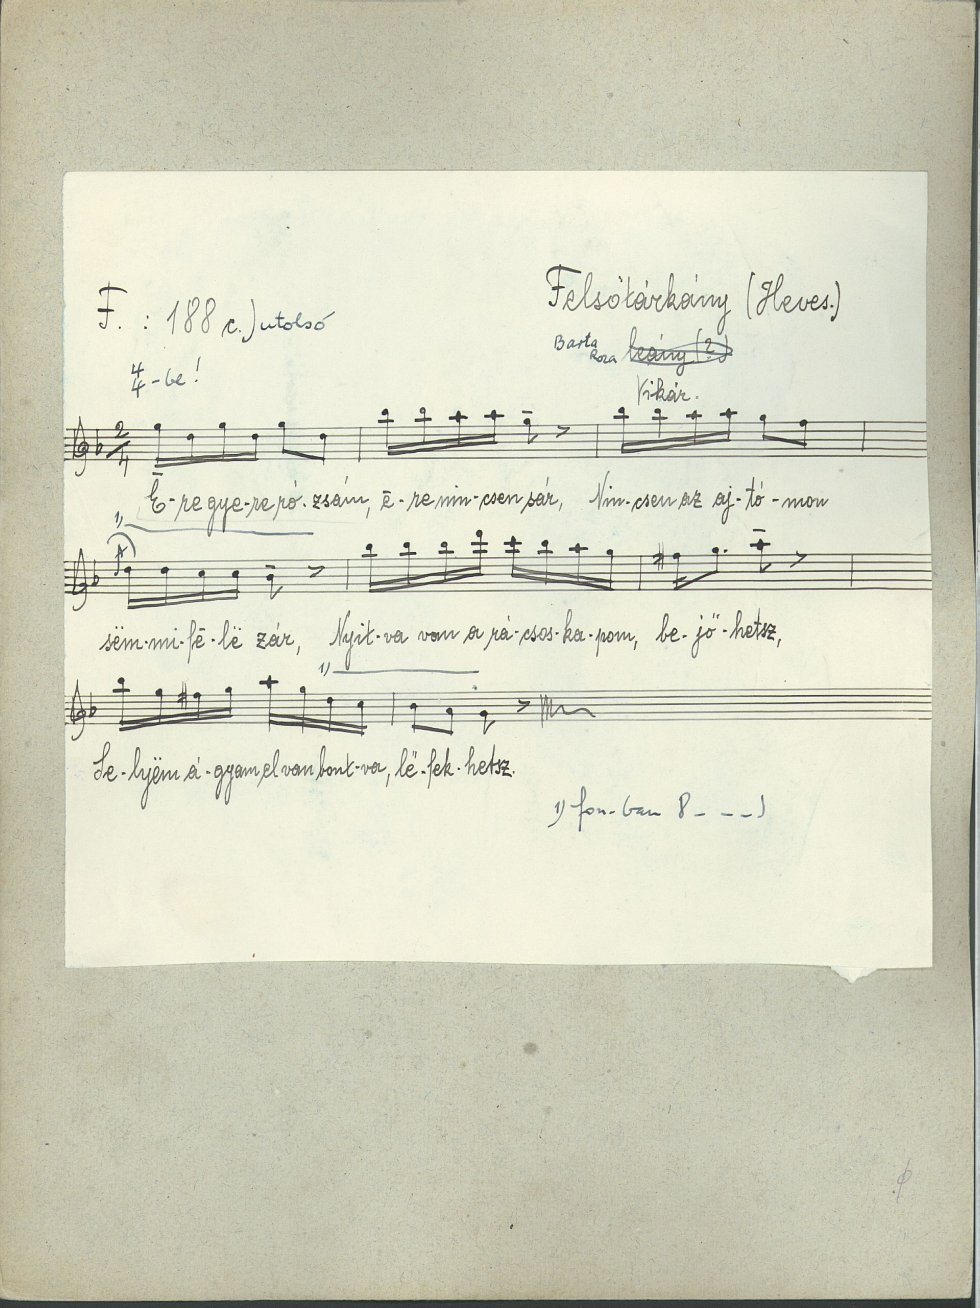 F. : 188 c.) utolsó
Felsőtárkány (Heves.)
Barta Roza leány (?)
4/4 -be!
Vikár.
2/4
É-re gye-re ró-zsám, ē-re nin-csen sár, Nin-csen az aj-tó-mon
1)
sëm-mi-fé-lë zár, Nyit-va van a rá-csos-ka-pom, be-jö-hetsz,
1)
Se-lyëm á-gyam el van bont-va, lë-fek-hetsz.
1) fon-ban 8 - - -